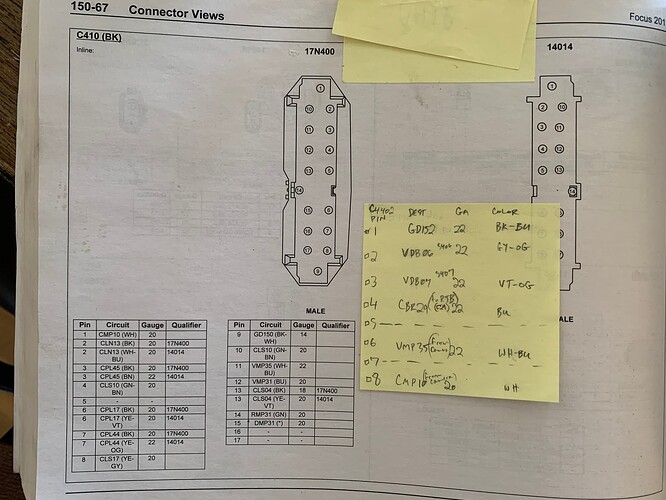 150-67 Connector Views
Focus 201
C410 (BK)
Inline:
17N400
14014
MALE
Pin Circuit Gauge Qualifier
1 CMP10 (WH) 20
2 CLN13 (BK) 20 17N400
2 CLN13 (WH-BU) 20 14014
3 CPL45 (BK) 20 17N400
3 CPL45 (BN) 22 14014
4 CLS10 (GN-BN) 20
5 - -
6 CPL17 (BK) 20 17N400
6 CPL17 (YE-VT) 20 14014
7 CPL44 (BK) 20 17N400
7 CPL44 (YE-OG) 22 14014
8 CLS17 (YE-GY) 20
Pin Circuit Gauge Qualifier
9 GD150 (BK-WH) 14
10 CLS10 (GN-BN) 20
11 VMP35 (WH-BU) 22
12 VMP31 (BU) 20
13 CLS04 (BK) 18 17N400
13 CLS04 (YE-VT) 20 14014
14 RMP31 (GN) 20
15 DMP31 (*) 20
16 - -
17 - -
C4402 PIN DEST GA COLOR
1 GD152 22 BK-BU
2 VDB06 22 GY-OG
3 VDB07 22 VT-OG
4 22 BU
5
6 VMP35 (from 22 WH-BU
7
8 CMP10 20 WH
ALE